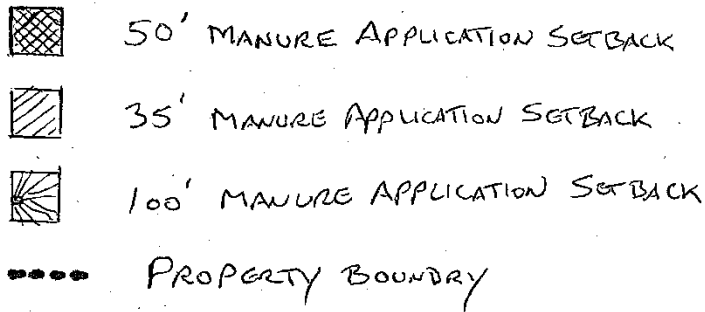 50' MANURE APPLICATION SETBACK
35' MANURE APPLICATION SETBACK
100' MANURE APPLICATION SETBACK
PROPERTY BOUNDRY